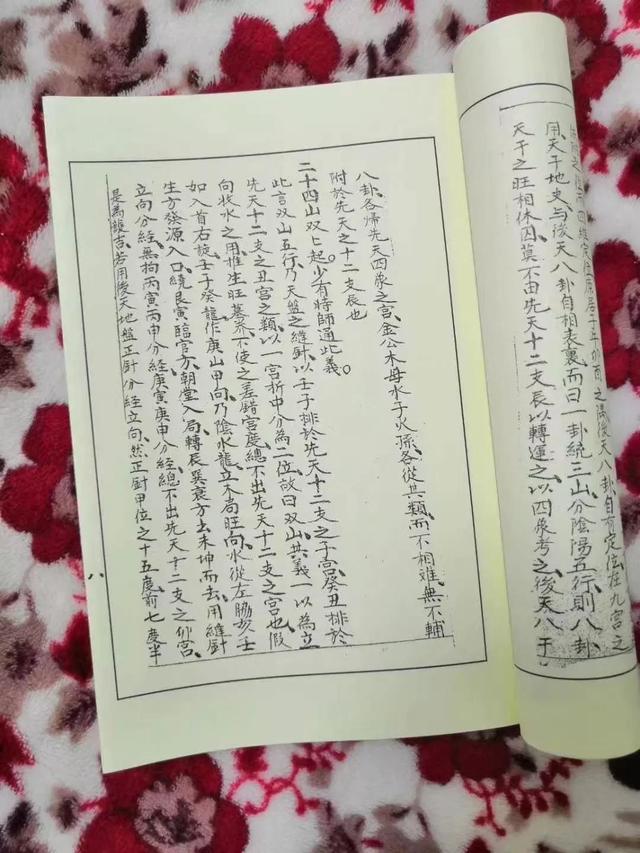 用天干地支、与後天八卦自相表裏、而曰一卦統三山、分陰陽五行、則八卦
天干之旺相休囚、莫不由先天十二支辰以轉運之、以四象考之、後天八
八卦、各帰先天四象之宮、金公木母水子火孫、各從其類、而不相離、無不輔
附於先天之十二支辰也
二十四山双上起。少有時師通此義。
此言双山五行、乃天盤之縫針、以壬子排於先天十二支之子宮、癸丑排於
先天十二支之丑宮之類、以一宮折中分為二位、故曰双山、其義一以為立
向收水之用、推生旺墓养、不使之差錯宮度、總不出先天十二支之宮也、假
如入首右旋、壬子癸龍作庚山甲向、乃陰水龍、立木局旺向、水從左腸亥壬
生方發源入口、繞艮寅臨官方、朝堂入局、轉辰巽衰方去未坤而去、用縫針
立向分經、無拘丙寅丙申分經、庚寅庚申分經、總不出先天十二支之卯宮、
是為誰吉、若用後天地盤正針分經立向、然正針甲位之十五度、前七度半
八